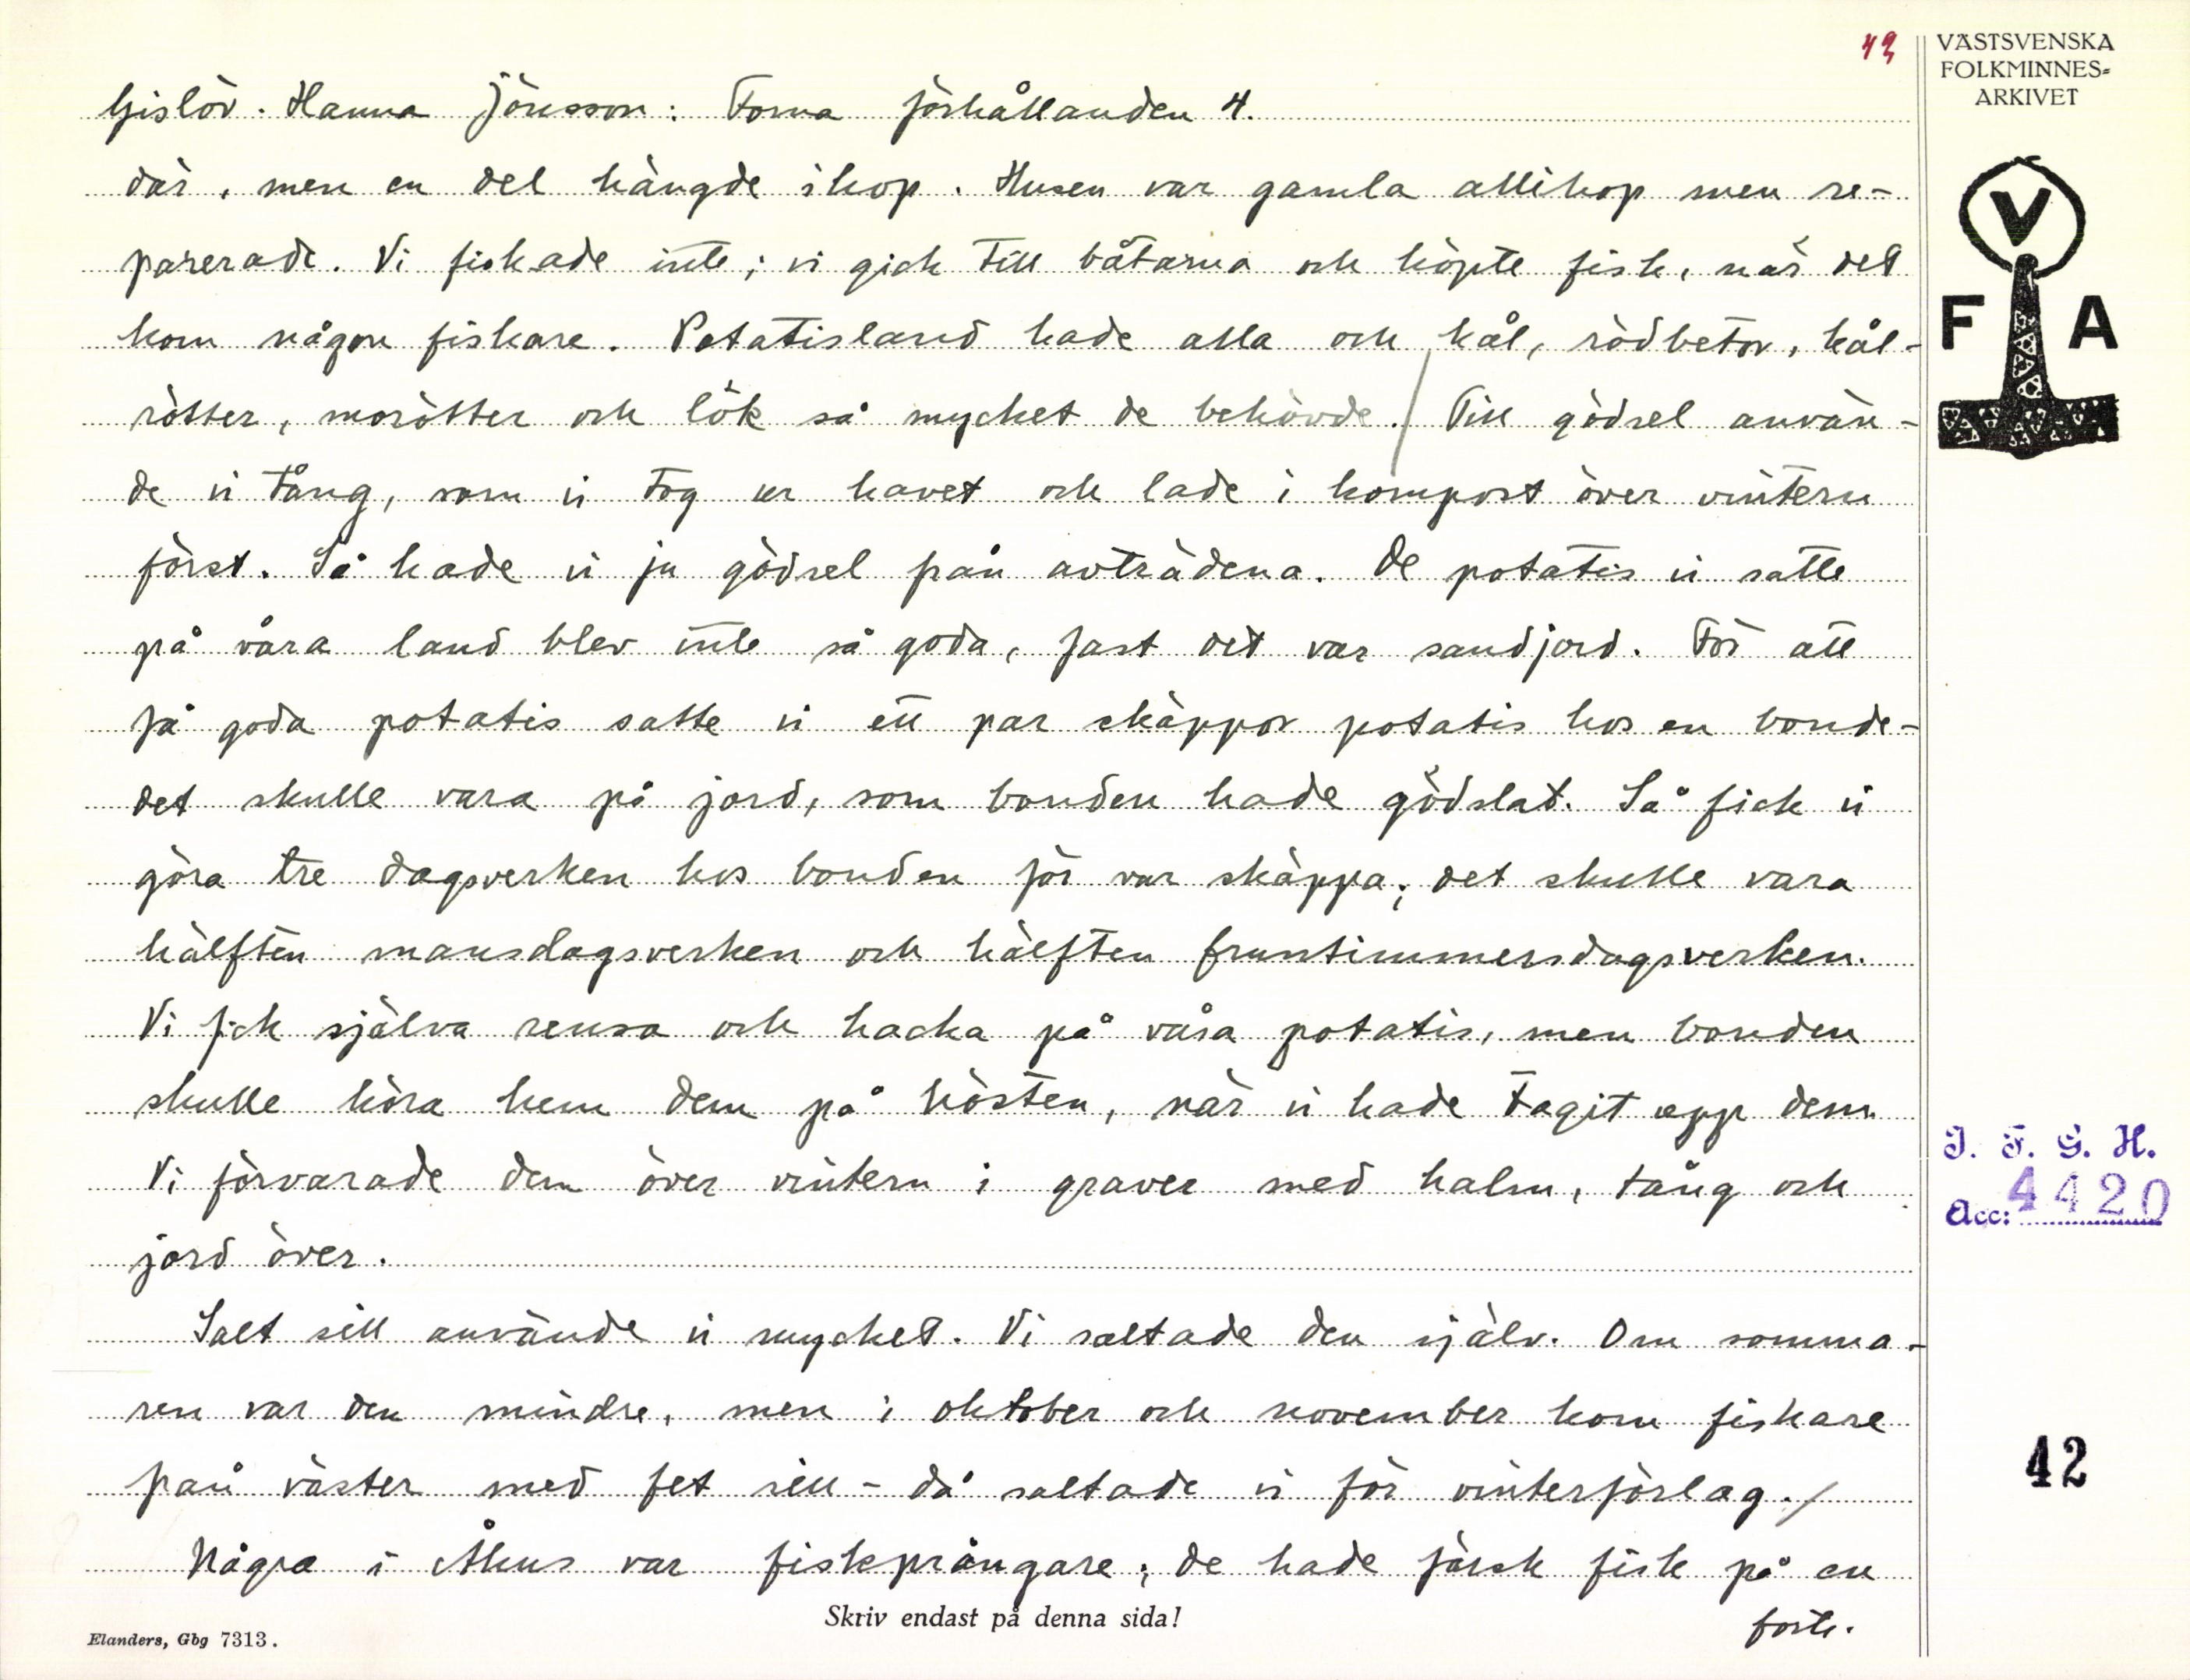 42
VÄSTSVENSKA
FOLKMINNES-
ARKIVET
V
F A
Gislöv. Hanna Jönsson: Forna förhållanden 4.
där, men en del hängde ihop. Husen var gamla allihop men re-
parerade. Vi fiskade inte; vi gick till båtarna och köpte fisk, när det
kom någon fiskare. Potatisland hade alla och kål, rödbetor, kål-
rötter, morötter och lök så mycket de behövde. / Till gödsel använ-
de vi tång, som vi tog ur havet och lade i kompost över vintern
först. Så hade vi ju gödsel från avträdena. De potatis vi satte
på våra land blev inte så goda, fast det var sandjord. För att
få goda potatis satte vi ett par skäppor potatis hos en bonde-
det skulle vara på jord, som bonden hade gödslat. Så fick vi
göra tre dagsverken hos bonden för var skäppa; det skulle vara
hälften mansdagsverken och hälften fruntimmersdagsverken.
Vi fick själva rensa och hacka på våra potatis, men bonden
skulle köra hem dem på hösten, när vi hade tagit upp dem.
Vi förvarade dem över vintern i graver med halm, tång och
jord över.
Salt sill använde vi mycket. Vi saltade den själv. Om somma-
ren var den mindre, men i oktober och november kom fiskare
från väster med fet sill - då saltade vi för vinterförlag. /
Några i Åhus var fiskprångare; de hade färsk fisk på en
forts.
Skriv endast på denna sida!
Elanders, Gbg 7313.
I. F. G. H.
Acc: 4420
42